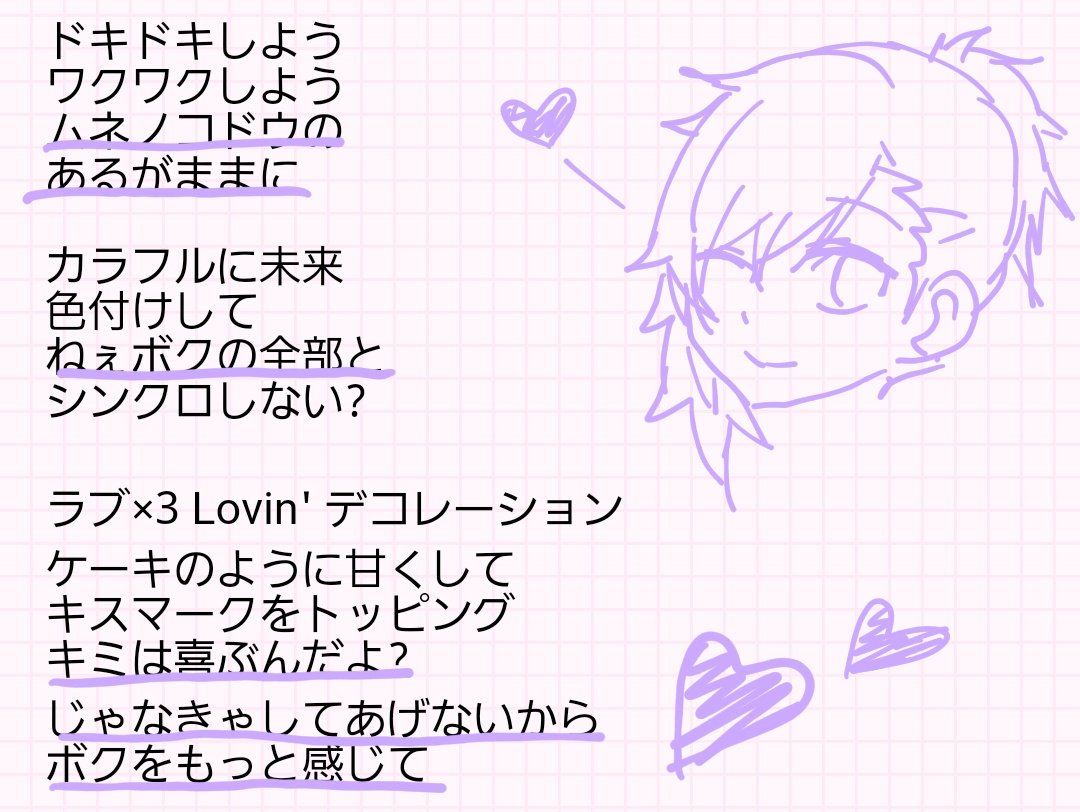 ドキドキしよう
ワクワクしよう
ムネノコドウの
あるがままに
カラフルに未来
色付けして
ねぇボクの全部と
シンクロしない?
ラブ×3 Lovin' デコレーション
ケーキのように甘くして
キスマークをトッピング
キミは喜ぶんだよ?
じゃなきゃしてあげないから
ボクをもっと感じて